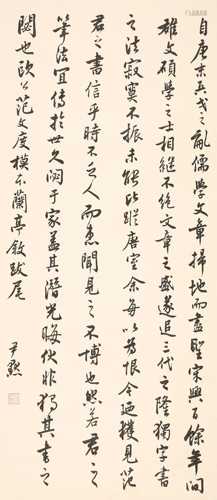 自唐末兵戈之亂儒學文章掃地而盡聖宋興百餘年間
雄文碩學之士相繼不絕文章之盛遂追三代之隆獨字書
之法寂寞不振未能比蹤唐室余每以為恨今廼獲見范
君之書信乎時不乏人而患聞見之不博也然若君之
筆法宜傳於世久閟于家蓋其潛光晦伏非獨其書之
閟也歐公范文度模本蘭亭敘跋尾
尹默